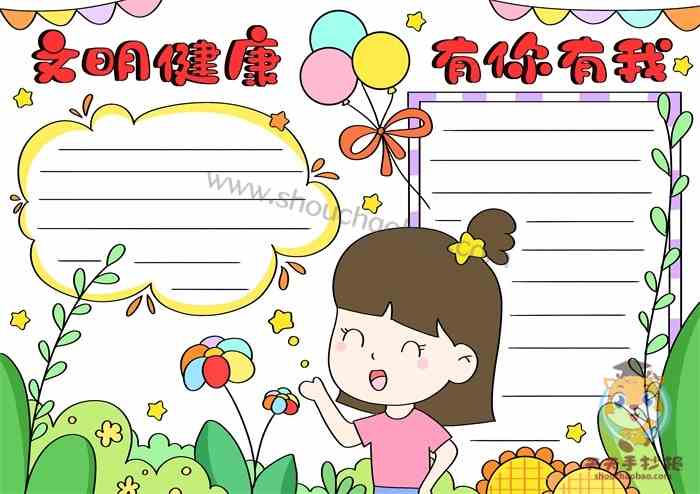 文明健康 有你有我
www.shouchaobao
手抄报
shouchaobao.com